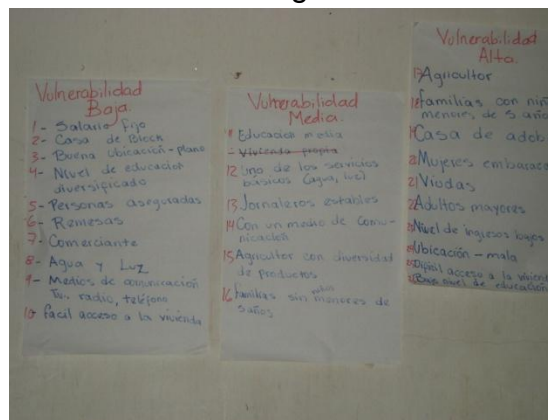 Vulnerabilidad
Baja.
1- Salario fijo
2- Casa de Block
3- Buena ubicación-plano
4- Nivel de educación
diversificado
5- Personas aseguradas
6- Remesas
7- Comerciante
8- Agua y Luz
9- Medios de comunicación
Tv. radio, teléfono
10- facil acceso a la vivienda
Vulnerabilidad
Media.
11 Educación media
- Vivienda propia
12 Uno de los servicios
básicos (agua, luz)
13 Jornaleros estables
14 Con un medio de comu-
nicación
15 Agricultor con diversidad
de productos
16 familias sin niños menores de
5 años
Vulnerabilidad
Alta.
17 Agricultor
18 familias con niñ
menores de 5 años
19 Casa de adob
20 Mujeres embaraza
21 Viudas
22 Adultos mayores
23 Nivel de ingresos bajos
24 Ubicación - mala
25 Difícil acceso a la vivienda
26 Bajo nivel de educación